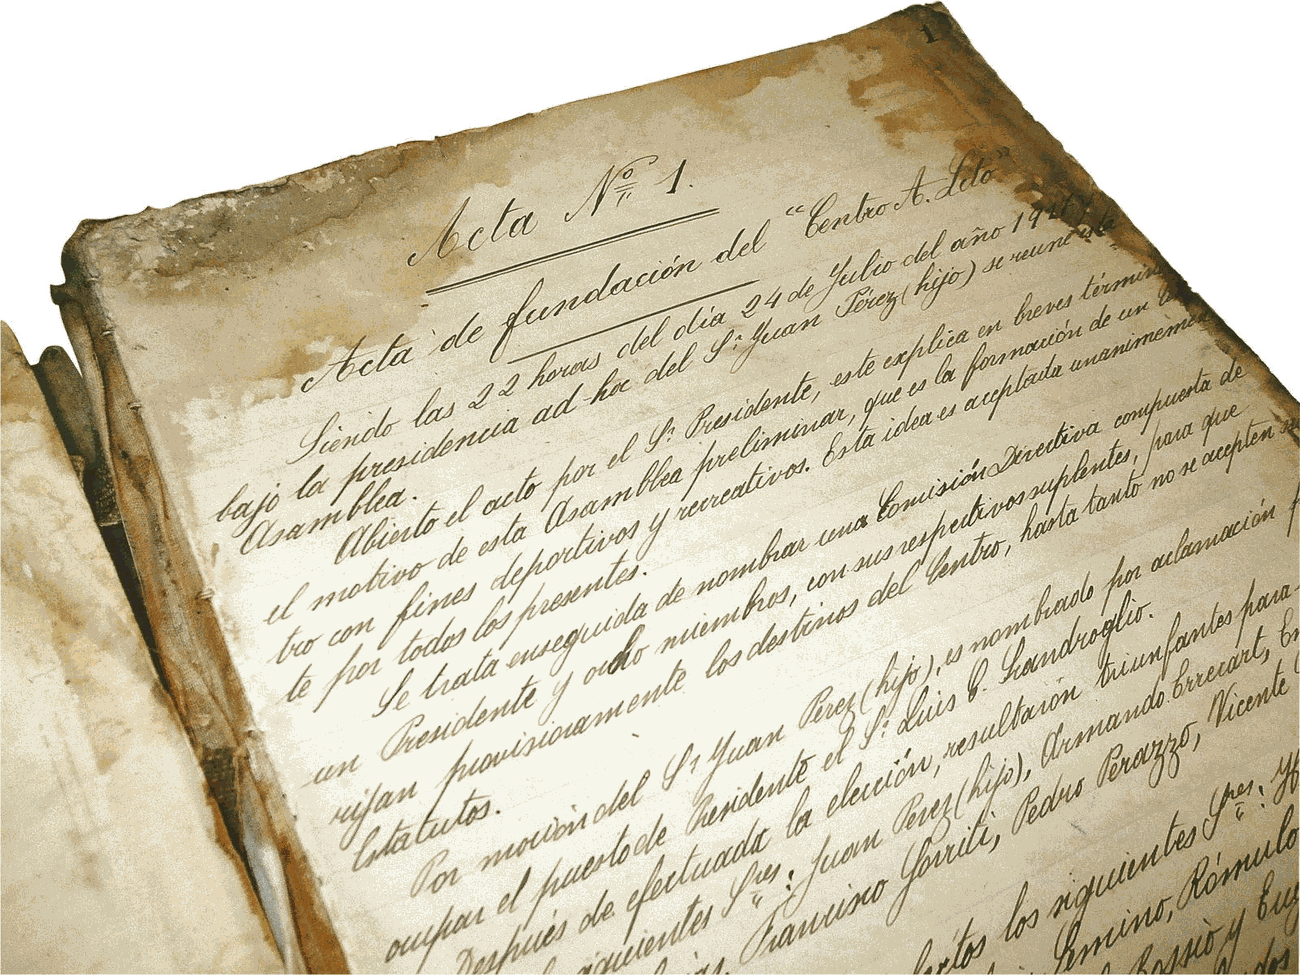 1
Acta Nº 1.
Acta de fundación del "Centro A. Leto"
Siendo las 22 horas del día 24 de Julio del año 19
bajo la presidencia ad-hoc del Sr. Juan Pérez (hijo) se reune
Asamblea.
Abierto el acto por el Sr. Presidente, este explica en breves términ
el motivo de esta Asamblea preliminar, que es la formación de un
tro con fines deportivos y recreativos. Esta idea es aceptada unanimemen
te por todos los presentes.
Se trata enseguida de nombrar una Comisión Directiva compuesta de
un Presidente y ocho miembros, con sus respectivos suplentes, para que
rijan provisionamente los destinos del Centro, hasta tanto no se acepten
Estatutos.
Por moción del Sr Juan Perez (hijo), es nombrado por aclamación
ocupar el puesto de Presidente el Sr. Luis C. Scandroglio.
Después de efectuada la elección, resultaron triunfantes para
siguientes Sres: Juan Perez (hijo), Armando Errecart,
Francisco Gorriti, Pedro Perazzo, Vicente
los siguientes Sres:
Rómulo
y